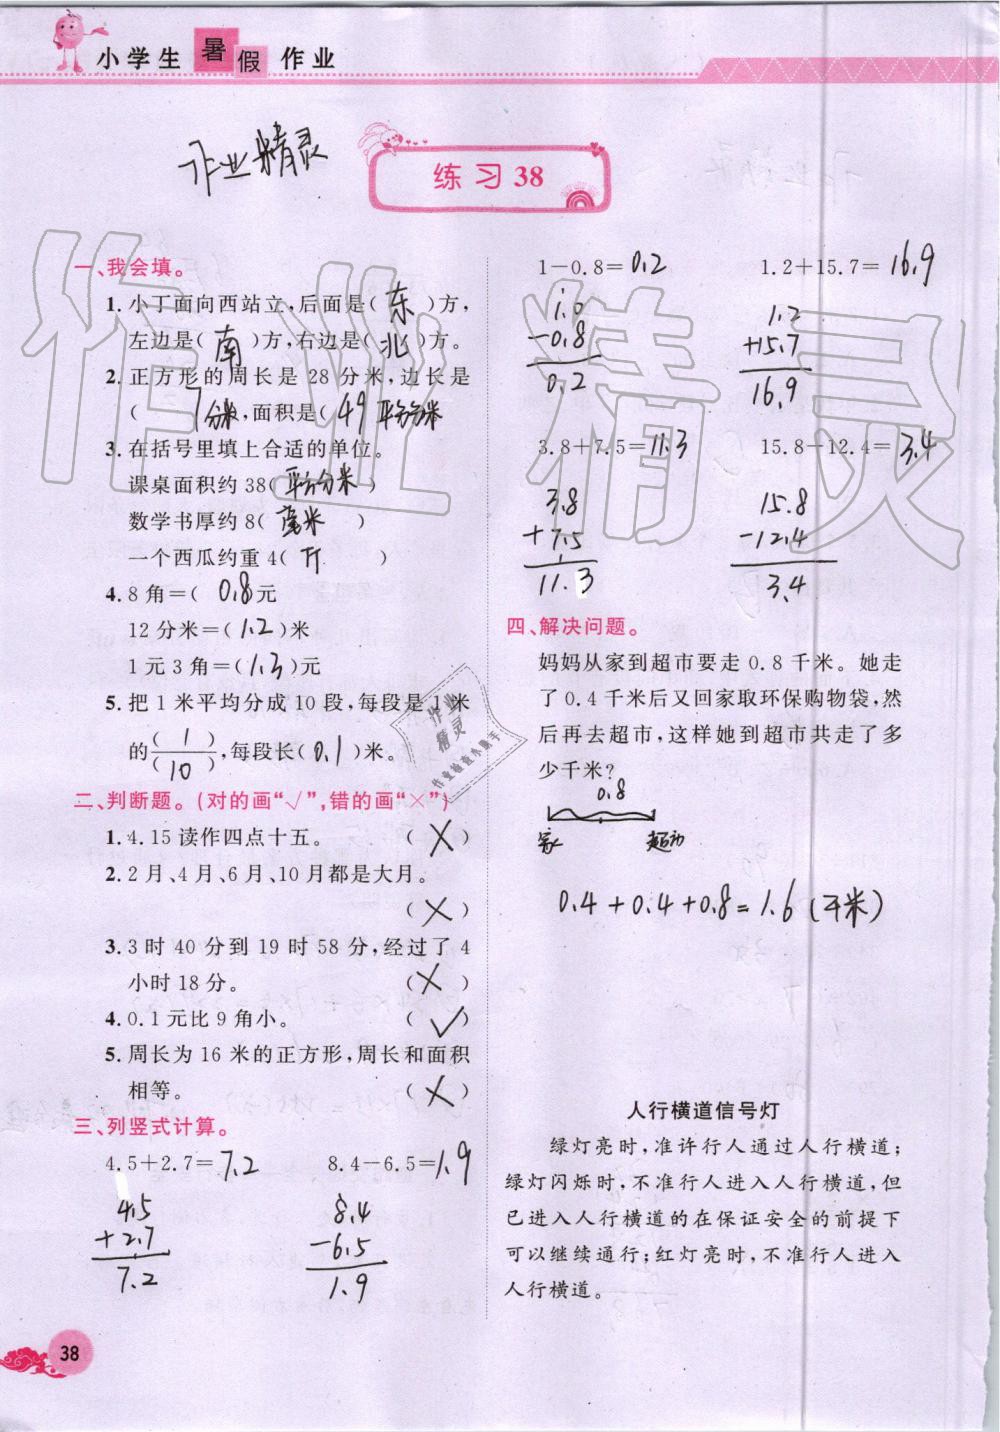 小学生暑假作业
作业精灵
练习38
一、我会填。
1.小丁面向西站立,后面是(东)方,
左边是(南)方,右边是(北)方。
2.正方形的周长是28分米,边长是
(7分米,面积是(49平方分米
3.在括号里填上合适的单位。
课桌面积约38(平方分米)
数学书厚约8(毫米)
一个西瓜约重4(千)
4.8角=(0.8元
12分米=(1.2)米
1元3角=(1.3)元
5.把1米平均分成10段,每段是1米
的(1)/(10),每段长(0.1)米。
二、判断题。(对的画“√”,错的画“×”)
1.4.15读作四点十五。(×)
2.2月、4月、6月、10月都是大月。
(×)
3.3时40分到19时58分,经过了4
小时18分。(×)
4.0.1元比9角小。(√)
5.周长为16米的正方形,周长和面积
相等。(×)
三、列竖式计算。
4.5+2.7=7.2 8.4-6.5=1.9
4.5 8.4
+2.7 -6.5
7.2 1.9
1-0.8=0.2 1.2+15.7=16.9
1.0 1.2
-0.8 +15.7
0.2 16.9
3.8+7.5=11.3 15.8-12.4=3.4
3.8 15.8
+7.5 -12.4
11.3 3.4
四、解决问题。
妈妈从家到超市要走0.8千米。她走
了0.4千米后又回家取环保购物袋,然
后再去超市,这样她到超市共走了多
少千米?
0.8
家 超市
0.4+0.4+0.8=1.6(千米)
人行横道信号灯
绿灯亮时,准许行人通过人行横道;
绿灯闪烁时,不准行人进入人行横道,但
已进入人行横道的在保证安全的前提下
可以继续通行;红灯亮时,不准行人进入
人行横道。
38
作业精灵
作业
精灵